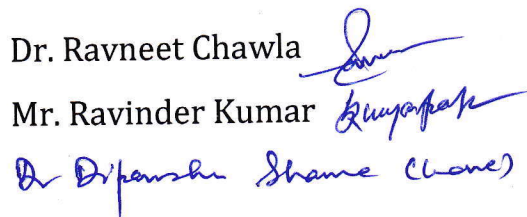 Dr. Ravneet Chawla
Mr. Ravinder Kumar
Dr Dipanshu Sharma